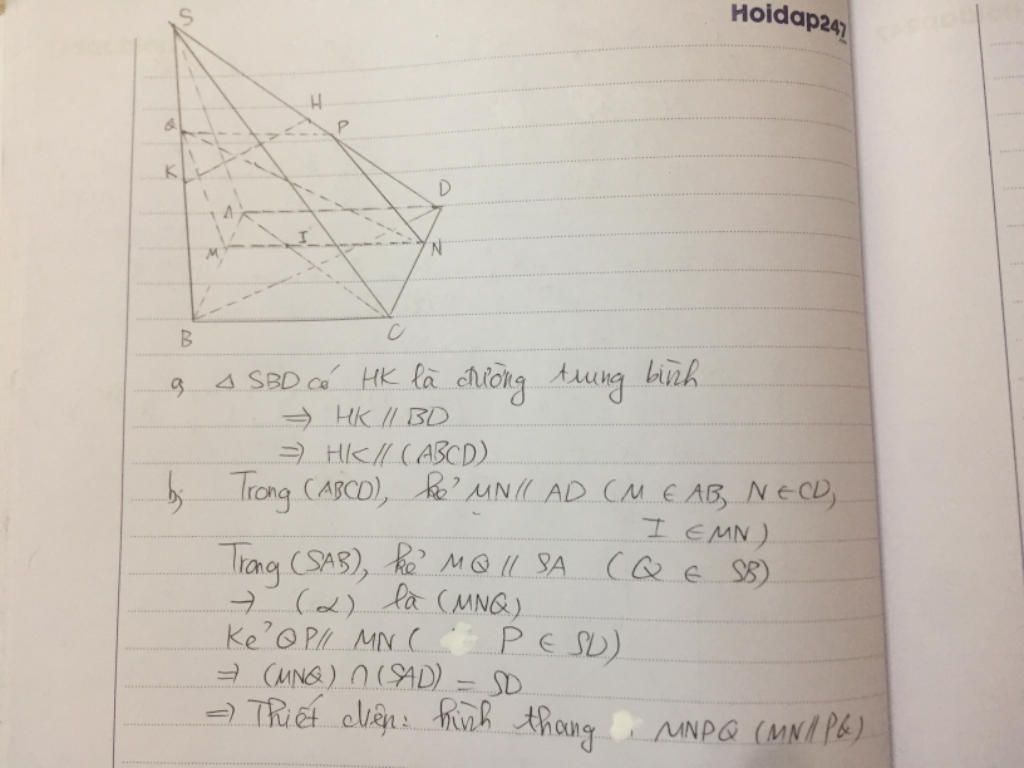 Hoidap247
S
H
Q
P
K
D
A
I
M
N
B
C
a, Δ SBD có HK là đường trung bình
⇒ HK // BD
⇒ HK // (ABCD)
b, Trong (ABCD), kẻ MN // AD (M ∈ AB, N ∈ CD,
I ∈ MN)
Trong (SAB), kẻ MQ // SA (Q ∈ SB)
→ (α) là (MNQ)
Kẻ QP // MN ( P ∈ SD)
⇒ (MNQ) ∩ (SAD) = SD
⇒ Thiết diện: hình thang MNPQ (MN // PQ)